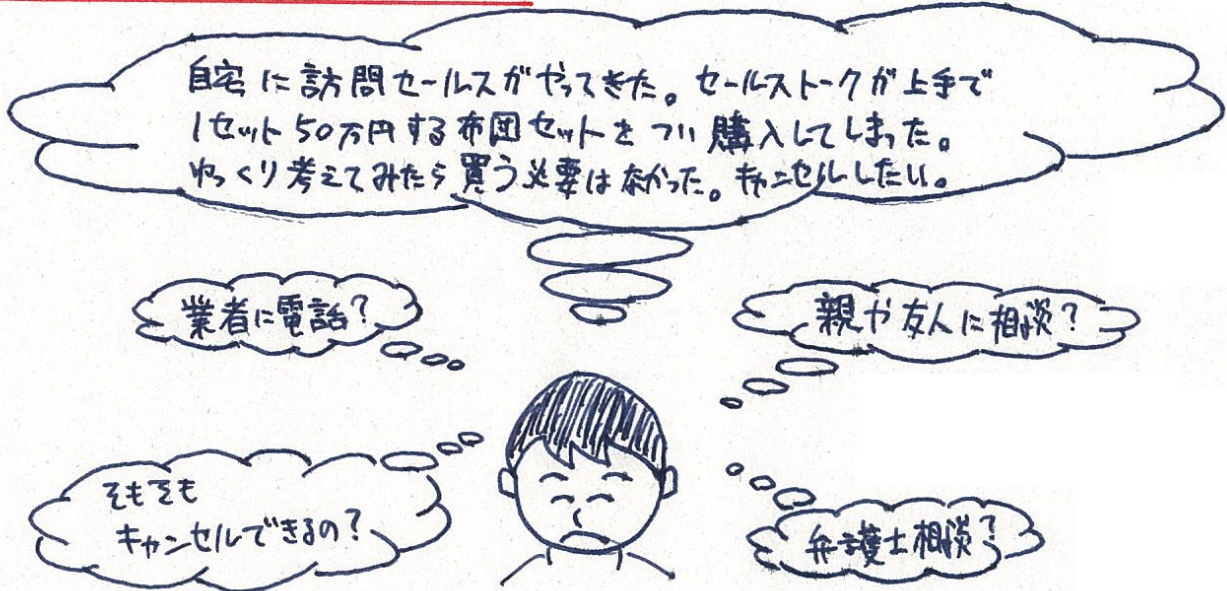 自宅に訪問セールスがやってきた。セールストークが上手で
1セット50万円する布団セットをつい購入してしまった。
ゆっくり考えてみたら買う必要はなかった。キャンセルしたい。
業者に電話?
親や友人に相談?
そもそも
キャンセルできるの?
弁護士相談?